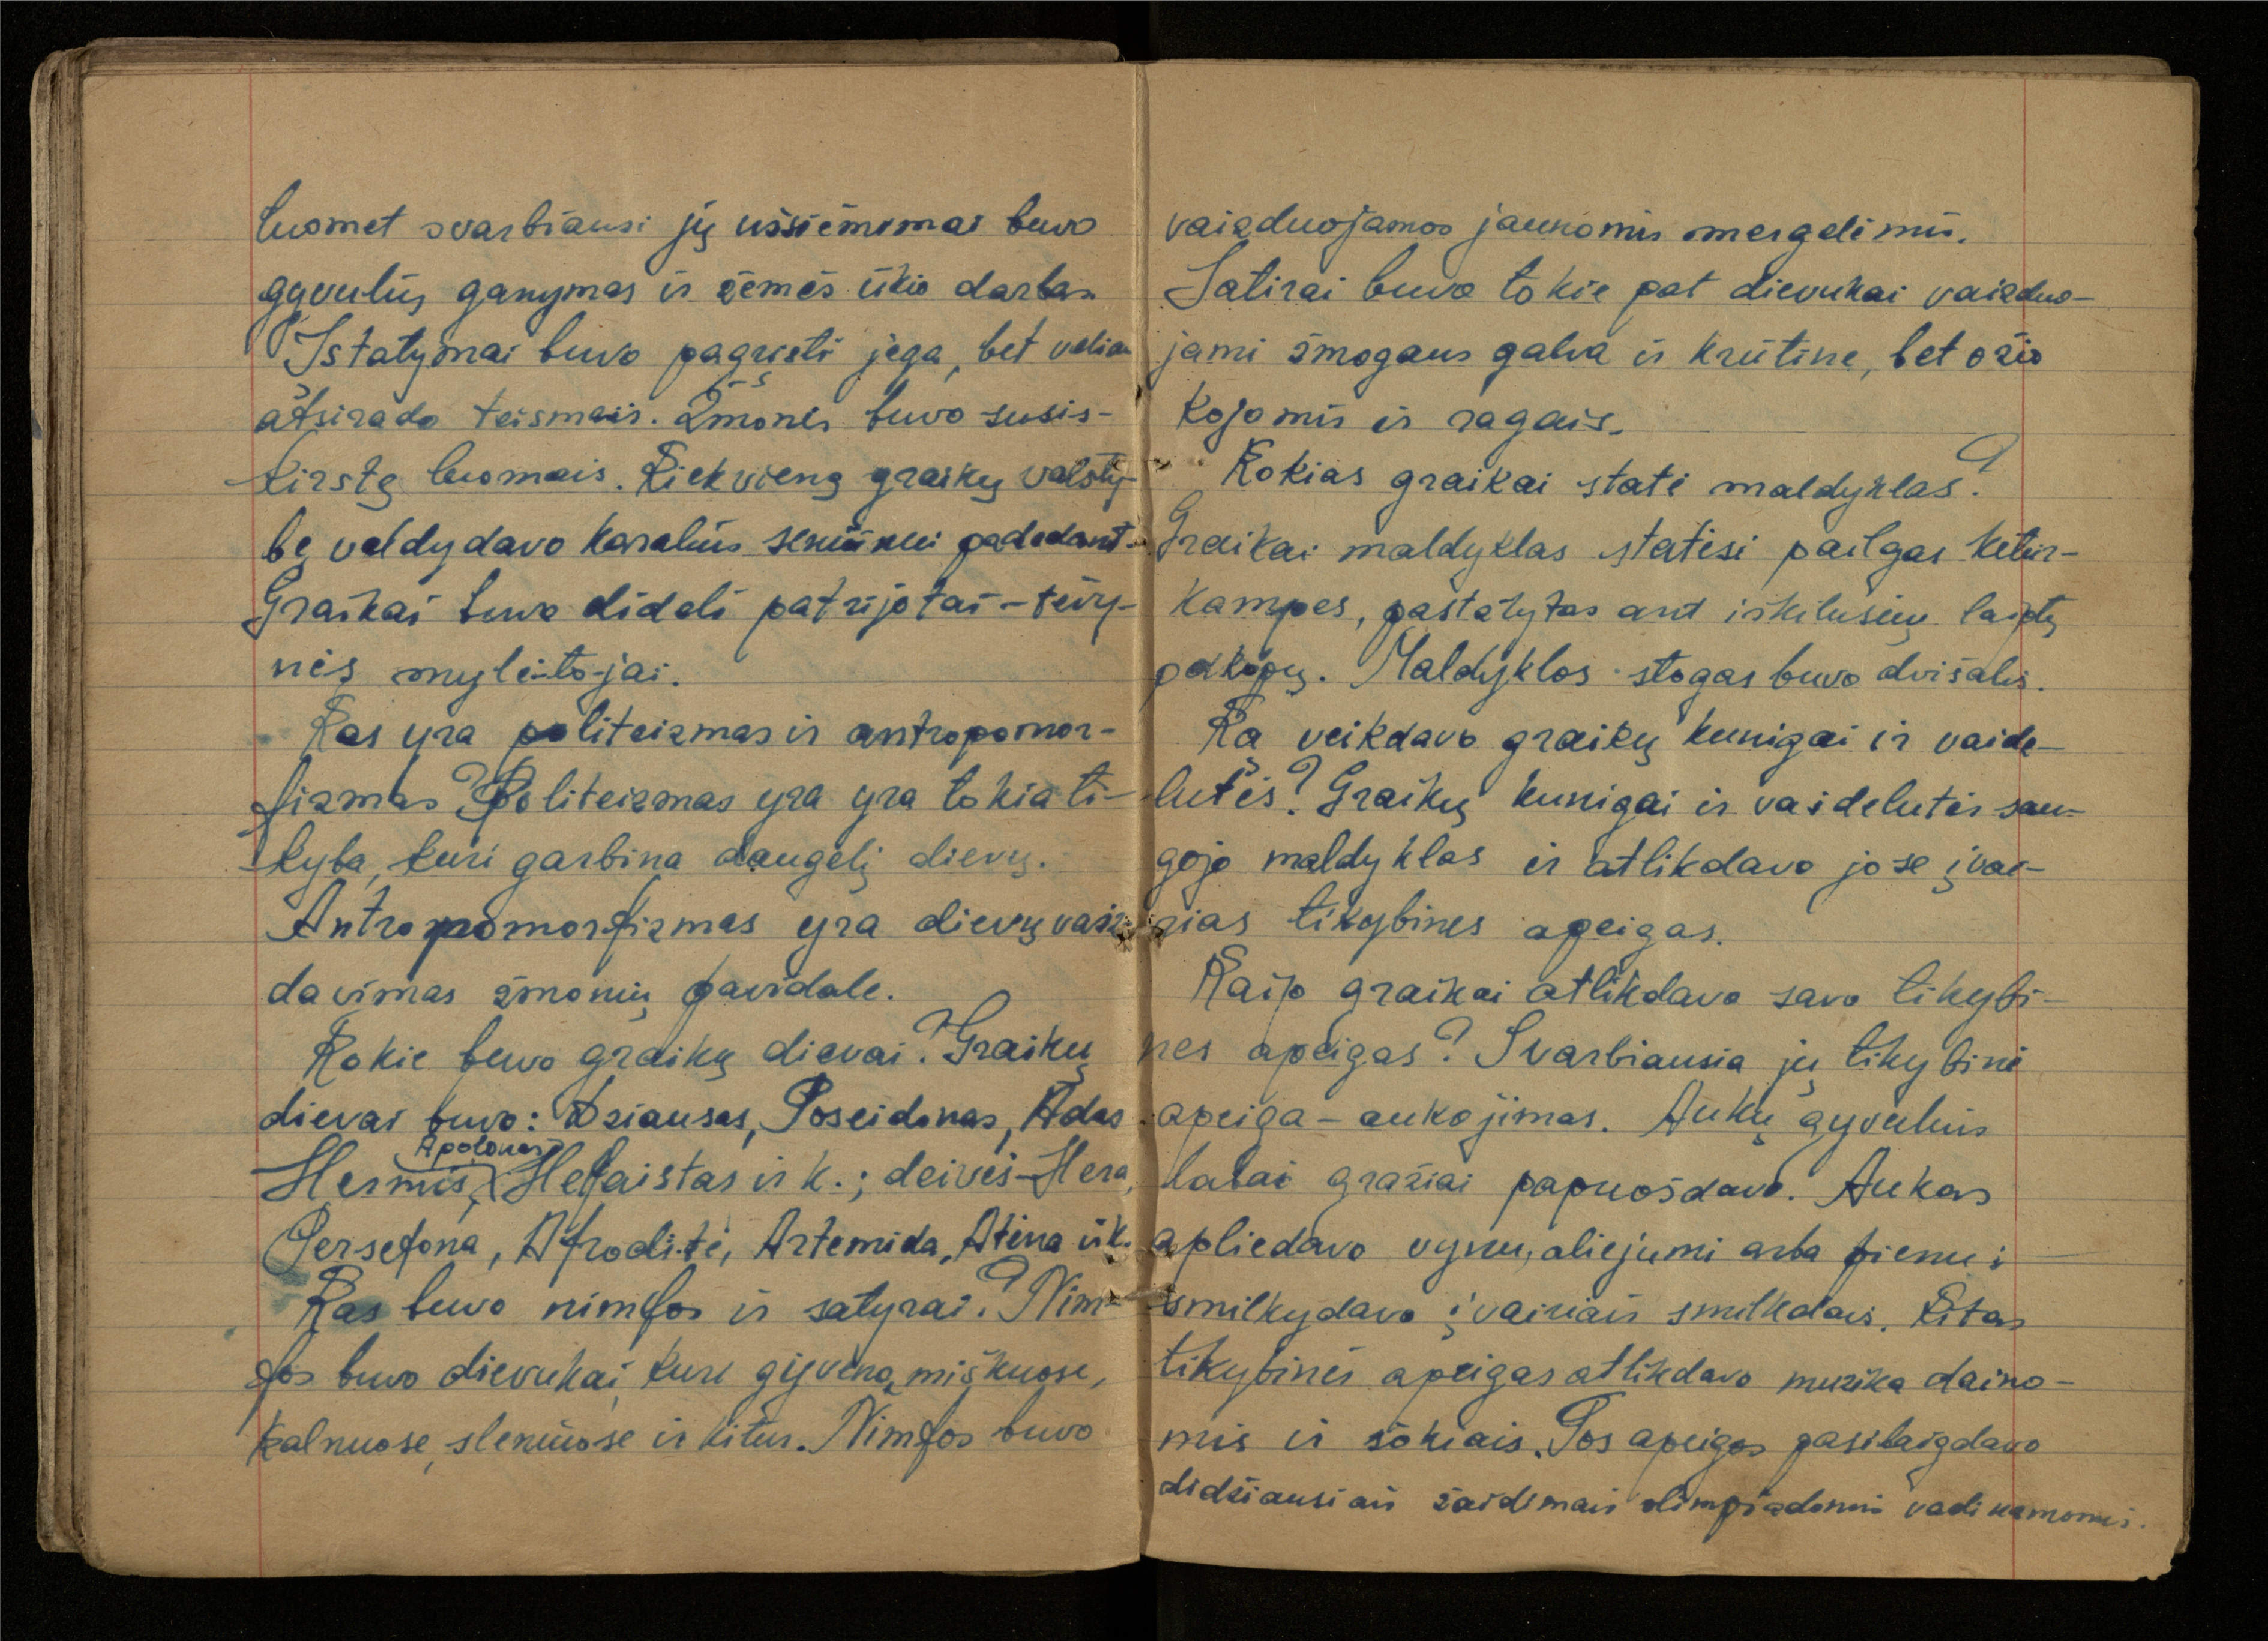 tuomet svarbiausi jų užsiėmimai buvo
gyvulių ganymas ir žemės ūkio darbas
Įstatymai buvo pagrįsti jėga, bet vėliau
atsirado teismais. Žmonės buvo susis-
kirstę luomais. Kiekvieną graikų valsty-
bę valdydavo karalius seniūnui padedant.
Graikai buvo dideli patrijotai – tėvy-
nės mylėtojai.
Kas yra politeizmas ir antropomor-
fizmas? Politeizmas yra yra tokia ti-
kyba, kuri garbina daugelį dievų.
Antropomorfizmas yra dievų vaiz-
davimas žmonių pavidale.
Kokie buvo graikų dievai? Graikų
dievai buvo: Dziausas, Poseidonas, Adas
Apolonas
Hermis, Hefaistas ir k.; deivės – Hera,
Persefona, Afroditė, Artemida, Atėna ir k.
Kas buvo nimfos ir satyrai? Nim-
fos buvo dievukai kuri gyveno miškuose,
kalnuose, slėniuose ir kitur. Nimfos buvo
vaizduojamos jaunomis mergelėmis.
Satirai buvo tokie pat dievukai vaizduo-
jami žmogaus galva ir krūtine, bet ožio
kojomis ir ragais.
Kokias graikai statė maldyklas?
Graikai maldyklas statėsi pailgas ketur-
kampes, pastatytas ant iškilusių laiptų
pakopų. Maldyklos stogas buvo dvišalis.
Ką veikdavo graikų kunigai ir vaide-
lutės? Graikų kunigai ir vaidelutės sau-
gojo maldyklas ir atlikdavo jose įvai-
rias tikybines apeigas.
Kaip graikai atlikdavo savo tikybi-
nes apeigas? Svarbiausia jų tikybinė
apeiga – aukojimas. Aukų gyvulius
labai gražiai papuošdavo. Aukas
apliedavo vynu, aliejumi arba pienu ;
smilkydavo įvairiais smilkalais. Kitas
tikybinės apeigas atlikdavo muzika daino-
mis ir šokiais. Tos apeigos pasibaigdavo
didžiausiais žaidimais olimpiadomis vadinamomis.